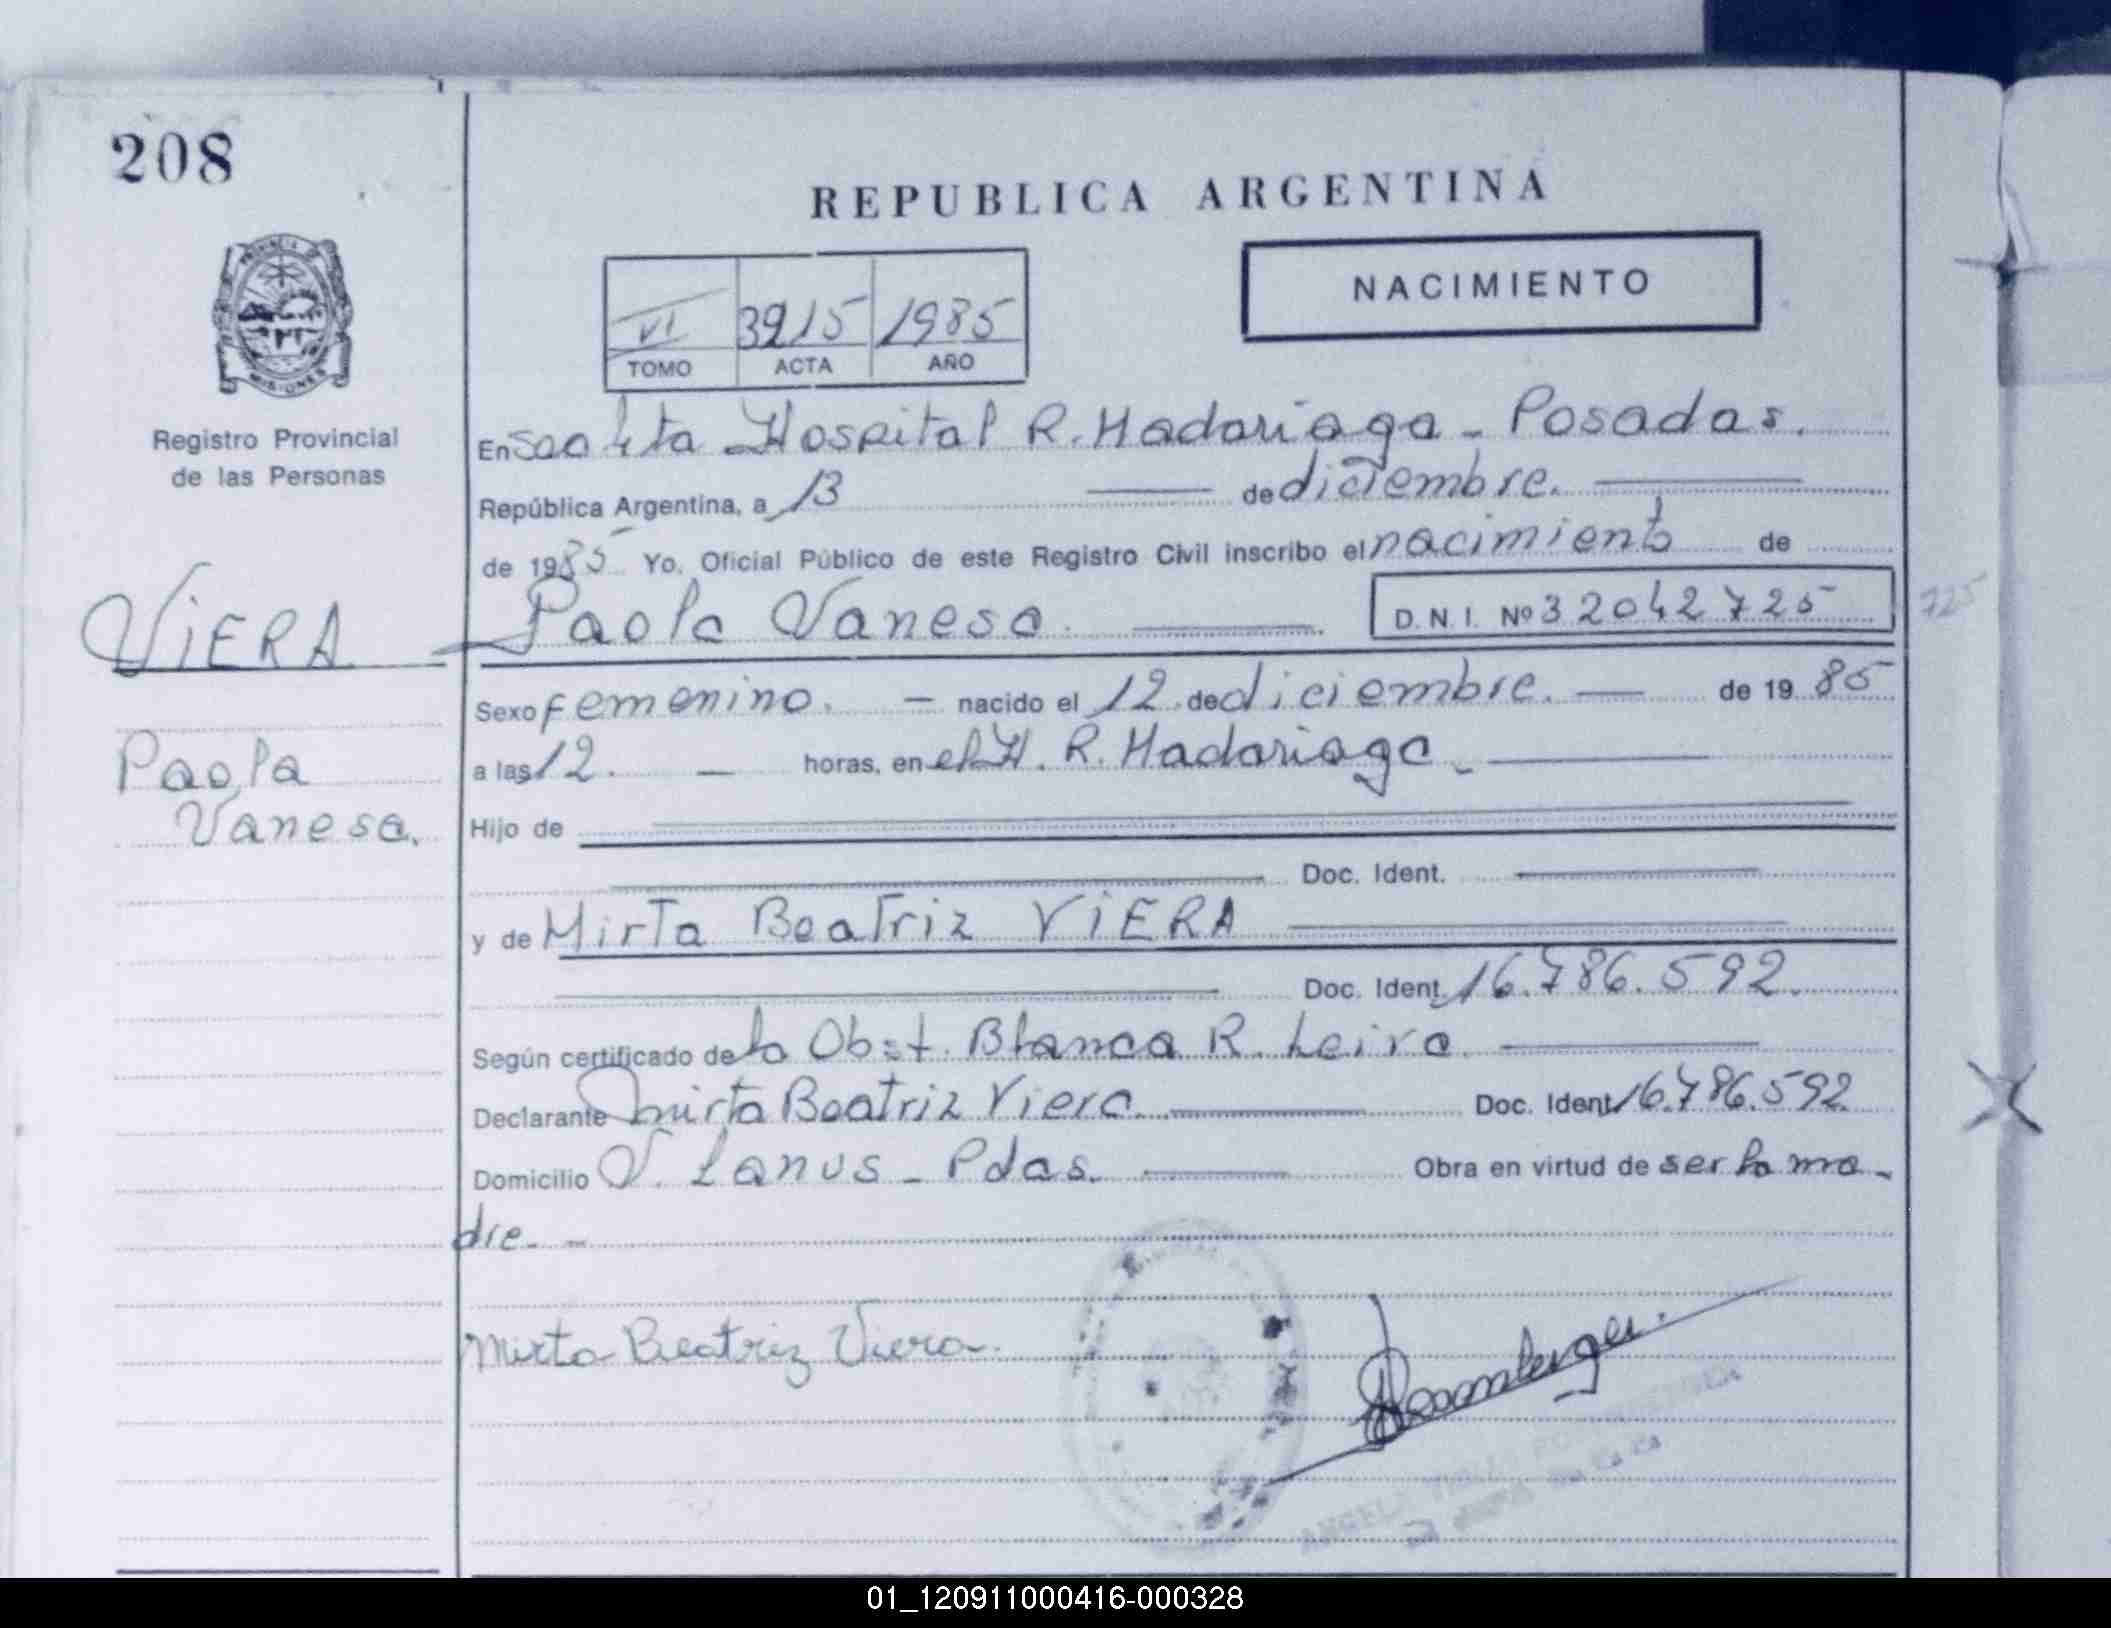 208
REPUBLICA ARGENTINA
PROVINCIA DE MISIONES
NACIMIENTO
VI 3915 1985
TOMO ACTA AÑO
Registro Provincial
de las Personas
En Secc 4ta Hospital R. Madariaga - Posadas.
República Argentina, a 13 de diciembre.
de 1985 Yo, Oficial Público de este Registro Civil inscribo el nacimiento de
VIERA Paola Vanesa. D. N. I. Nº 32042725 725
Sexo femenino. nacido el 12 de diciembre. de 19 85
Paola
Vanesa.
a las 12. horas, en el H. R. Madariaga
Hijo de
Doc. Ident.
y de Mirta Beatriz VIERA
Doc. Ident. 16.786.592.
Según certificado de la Obst. Blanca R. Leiva.
Declarante Mirta Beatriz Viera Doc. Ident. 16.786.592
Domicilio V. Lanus - Pdas. Obra en virtud de ser la ma-
dre.-
Mirta Beatriz Viera.
01_120911000416-000328